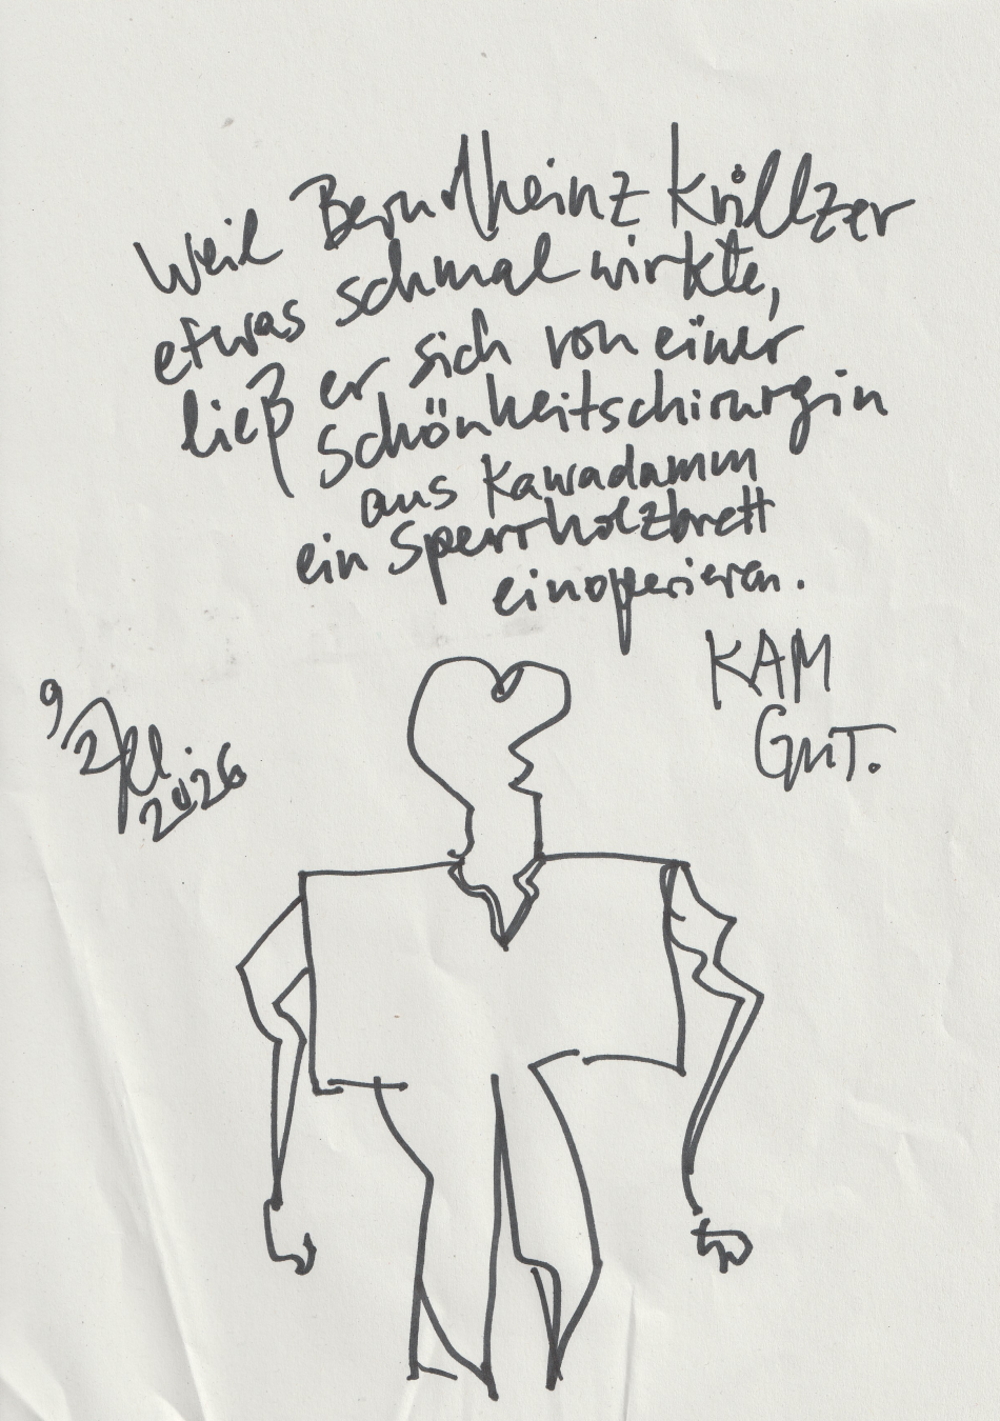 Weil Berndheinz Krillzer
etwas schmal wirkte,
ließ er sich von einer
Schönheitschirurgin
aus Kawadamm
ein Sperrholzbrett
einoperieren.
KAM
GUT.
9
2
2026